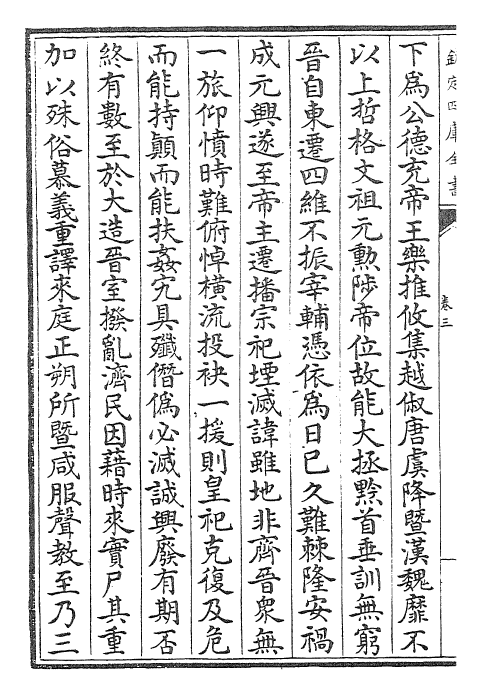 欽定四庫全書
卷三
下爲公德充帝王樂推攸集越俶唐虞降暨漢魏靡不
以上哲格文祖元勲陟帝位故能大拯黔首垂訓無窮
晉自東遷四維不振宰輔憑依爲日已久難棘隆安禍
成元興遂至帝主遷播宗祀堙滅諱雖地非齊晉衆無
一旅仰憤時難俯悼橫流投袂一援則皇祀克復及危
而能持顛而能扶姦宄具殲僭僞必滅誠興廢有期否
終有數至於大造晉室撥亂濟民因藉時來實尸其重
加以殊俗慕義重譯來庭正朔所暨咸服聲教至乃三